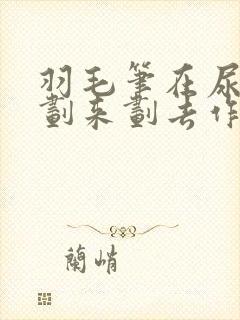 羽毛筆在尿
劃来劃去作
蘭峭